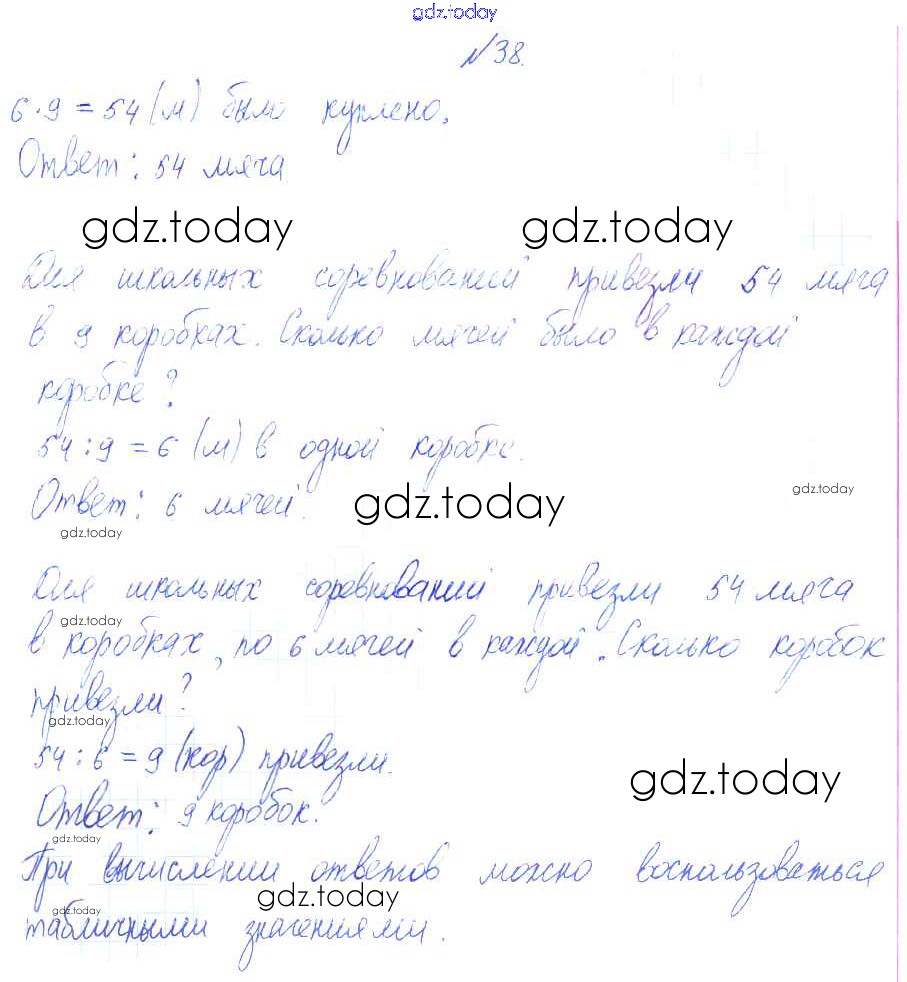 gdz.today
№38.
6·9=54 (м) было куплено.
Ответ: 54 мяча
gdz.today gdz.today
Для школьных соревнований привезли 54 мяча
в 9 коробках. Сколько мячей было в каждой
коробке?
54:9=6 (м) в одной коробке.
gdz.today
Ответ: 6 мячей. gdz.today
gdz.today
Для школьных соревнований привезли 54 мяча
gdz.today
в коробках, по 6 мячей в каждой. Сколько коробок
привезли?
gdz.today
54:6=9 (кор) привезли.
gdz.today
Ответ: 9 коробок.
gdz.today
При вычислении ответов можно воспользоваться
gdz.today
gdz.today
табличными значениями.